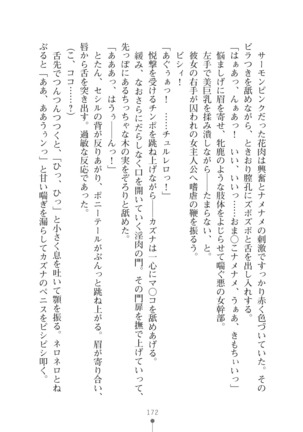 サーモンピンクだった花肉は興奮とナメナメの刺激ですっかり赤く色づいていた。その
ビラつきを舐めながら、ときおり膣孔にズボズボと舌を出し入れする。
「はぁあっ、んあっ！　いい、いいっ…おま〇こナメナメ、うぁあ、きもちいいっ」
悩ましげに眉をひそめ、牝鹿のような肢体をよじらせて喘ぐ悪の女幹部。
左手で美巨乳を揉み潰しながら――たまらない、とばかりに、
彼女の右手が囚われの女主人公へ嗜虐の鞭を振るう。
ビィ！
「あぐぅぁっ！　チュルレロっ！」
悦撃を受けるチンポを跳ね上げながら――カズナは一心にマ〇コを舐めあげる。
緩み、なおさらだらしなく口を開いていく淫肉の門。その門扉を撫で上げていって、
先っぽにあるちっちゃな木の実をぞろんと舐めた。
「あああっ、はうーんっ！」
とたん、セシルの背が反りあがり、ポニーテールがぶんっと跳ね上がる。眉が寄り合い、
唇から舌を突き出す。過敏な反応であった。
（こ、ココ……？）
舌先でつんつんつつくと、「ひっ、ひっ」と小さく息を吐いて顎を振る。ネロネロとね
ぶると「ああ、ああうぅンっ」と甘い喘ぎを漏らしてカズナのペニスをピシピシ叩く。
172